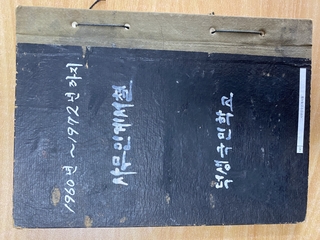 1960년 ~ 1972년까지
사무인계서철
덕생국민학교